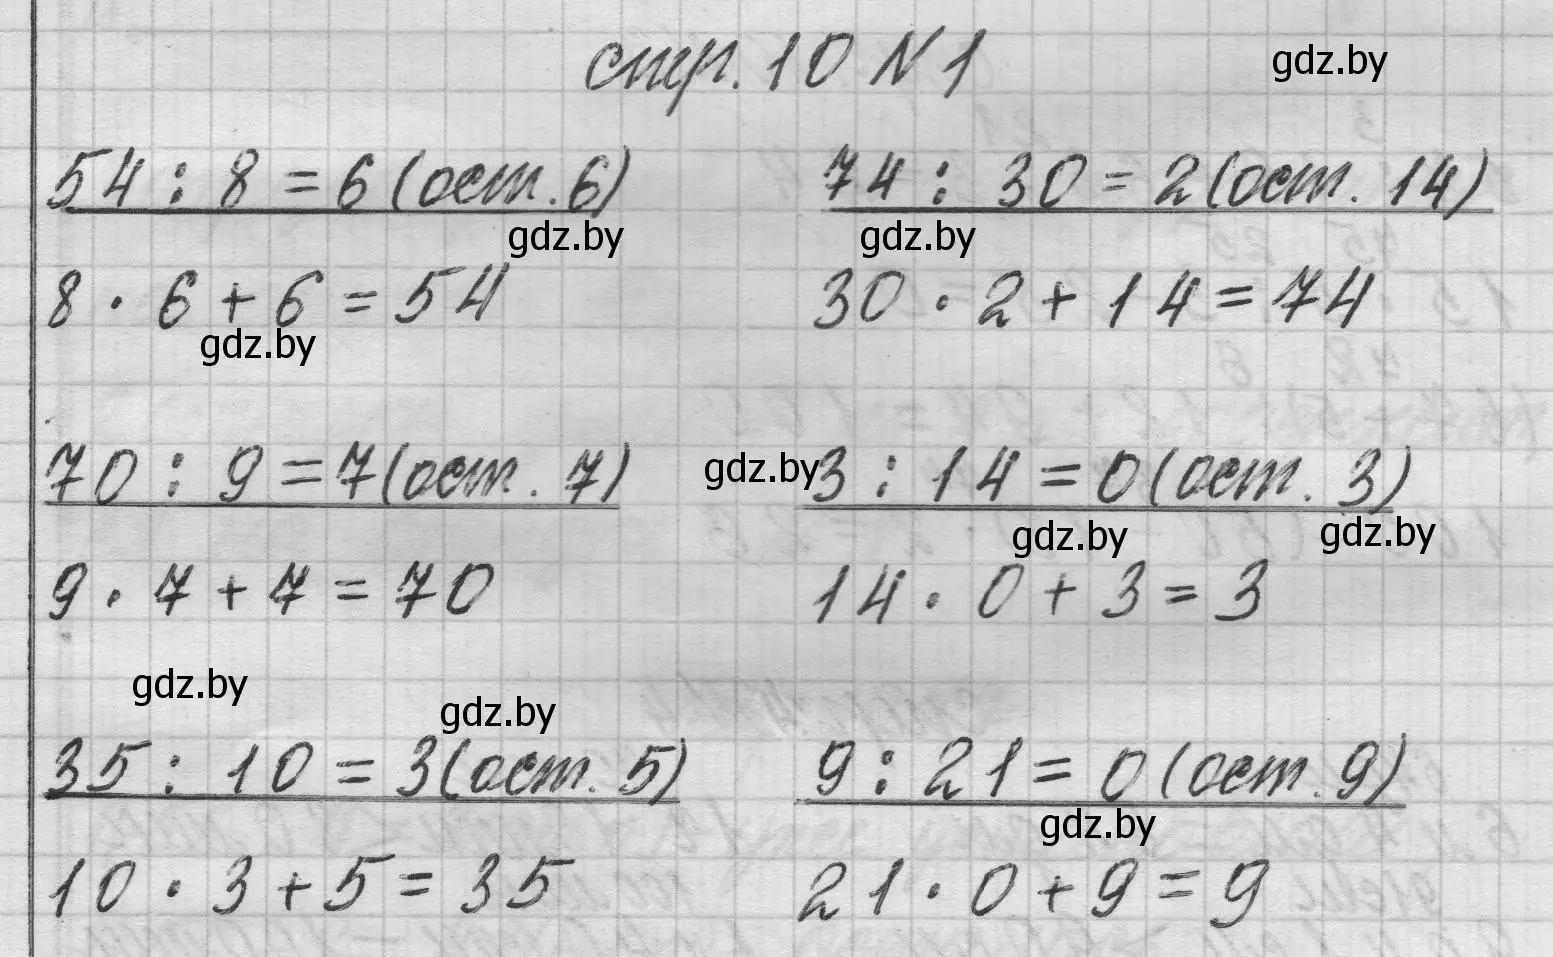 стр. 10 N 1
gdz.by
54 : 8 = 6 (ост. 6)
74 : 30 = 2 (ост. 14)
gdz.by
gdz.by
8 · 6 + 6 = 54
30 · 2 + 14 = 74
gdz.by
70 : 9 = 7 (ост. 7)
gdz.by
3 : 14 = 0 (ост. 3)
gdz.by
gdz.by
9 · 7 + 7 = 70
14 · 0 + 3 = 3
gdz.by
gdz.by
35 : 10 = 3 (ост. 5)
9 : 21 = 0 (ост. 9)
gdz.by
10 · 3 + 5 = 35
21 · 0 + 9 = 9